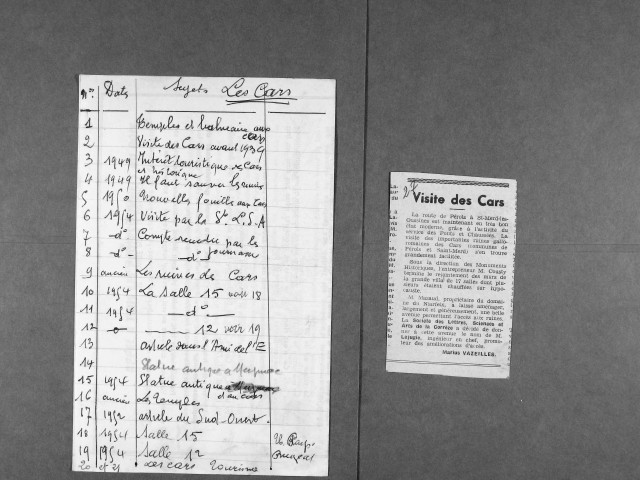 N° Dats Sujets Les Cars
1 Temples et balneaire aux Cars
2 Visite des Cars avant 1939
3 1949 Intérêt touristique & Cars et historique
4 1949 Il faut sauver les ruines
5 1950 Nouvelles fouilles aux Cars
6 1954 Visite par la Sté L.S.A
7 -d°- Compte rendu par les
8 -d°- -d°- journaux
9 ancien Les ruines de Cars
10 1954 La Salle 15 voir 18
11 1954 -d°-
12 12 voir 19
13 article dans l'Ami del'E
14 Statue antique a Meymac
15 1954 Statue antique
16 ancien Les Temples d'aux cars
17 1952 article du Sud-Ouest.
18 1954 Salle 15
19 1954 Salle 12
20 et 21 Les cars Tourisme
Bugeat
24
Visite des Cars
La route de Pérols à St-Merd-les-
Oussines est maintenant en très bon
état moderne, grâce à l'activité du
service des Ponts et Chaussées. La
visite des importantes ruines gallo-
romaines des Cars (communes de
Pérols et Saint-Merd) s'en trouve
grandement facilitée.
Sous la direction des Monuments
Historiques, l'entrepreneur M. Cousty
termine le rejointement des murs de
la grande villa de 17 salles dont plu-
sieurs étaient chauffées sur hypo-
causte.
M. Mazaud, propriétaire du domai-
ne du a laissé aménager,
largement et généreusement, une belle
avenue permettant l'accès aux ruines.
La Société des Lettres, Sciences et
Arts de la Corrèze a décidé de don-
ner à cette avenue le nom de M.
ingénieur en chef, promo-
teur des améliorations d'accès.
Marius VAZEILLES.